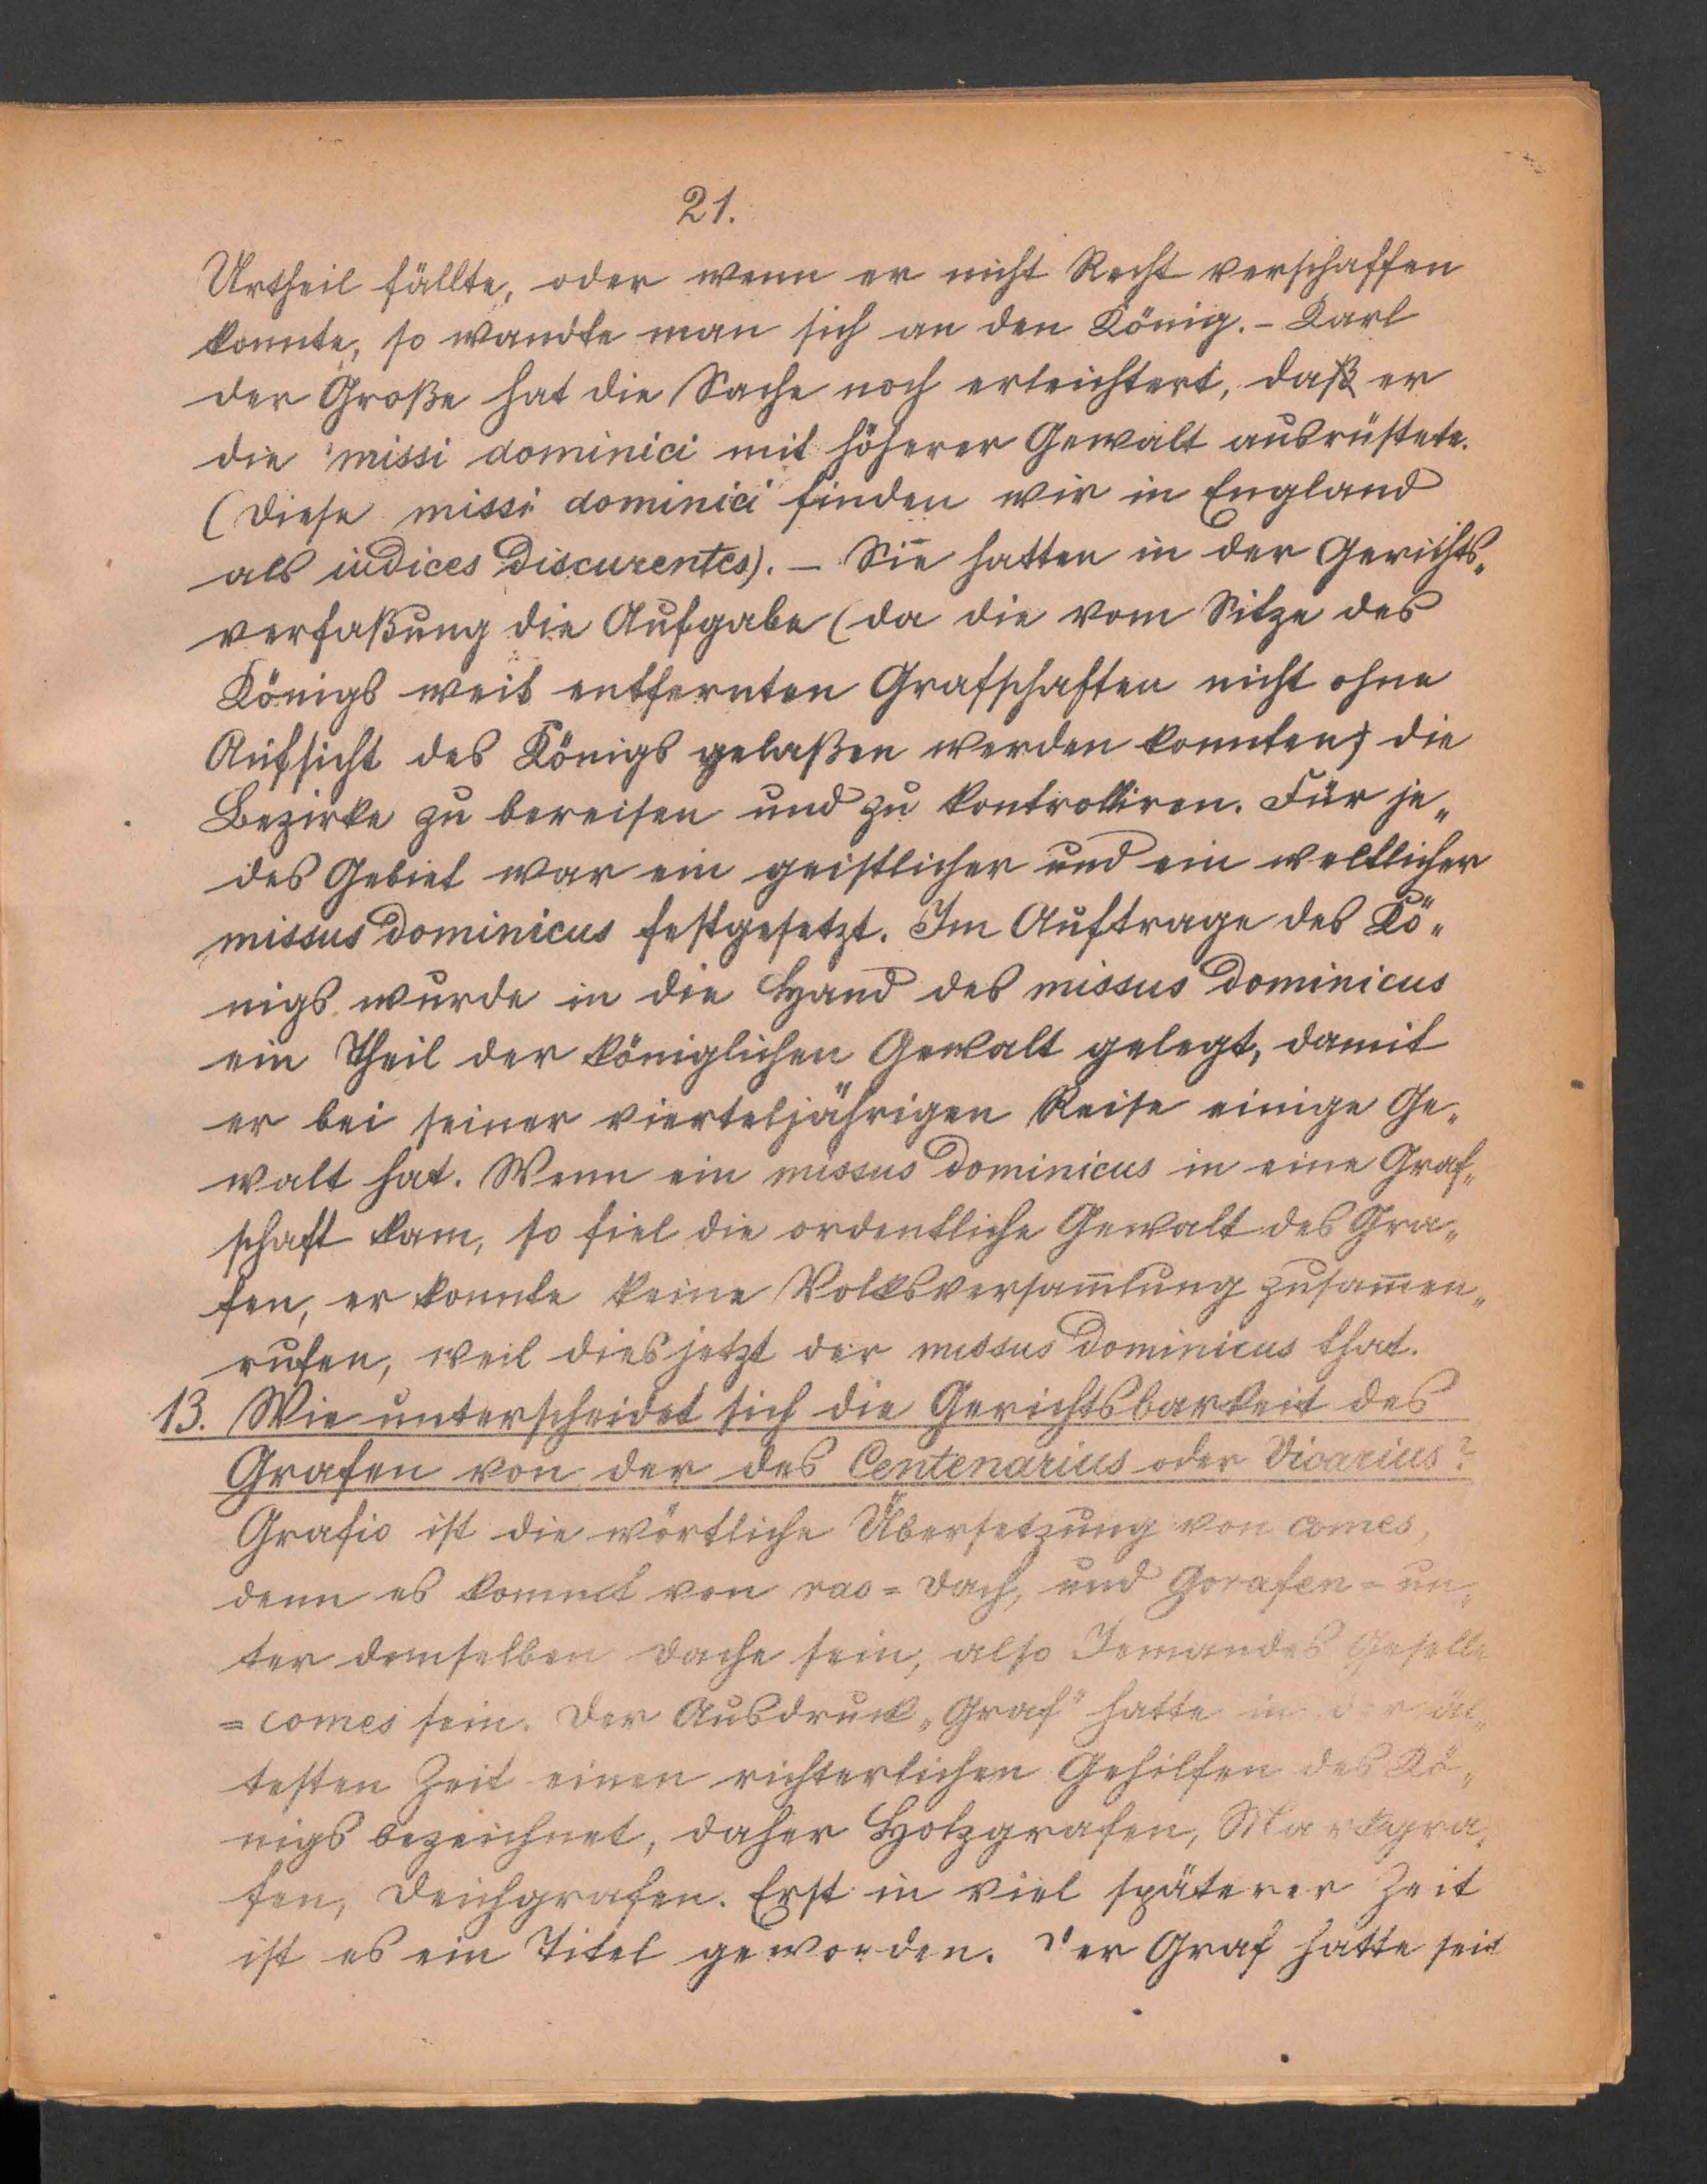 21.
Urtheil fällte, oder wenn er nicht Recht verschaffen
konnte, so wandte man sich an den König. - Karl
der Große hat die Sache noch erleichtert, daß er
die missi dominici mit höherer Gewalt ausrüstete.
(Diese missi dominici finden wir in England
als iudices discurentes). - Sie hatten in der Gerichts„
verfaßung die Aufgabe (da die vom Sitze des
Königs weit entfernten Grafschaften nicht ohne
Aufsicht des Königs gelaßen werden konnten) die
Bezirke zu bereisen und zu kontrolliren. Für je„
des Gebiet war ein geistlicher und ein weltlicher
missus dominicus festgesetzt. Im Auftrage des Kö„
nigs wurde in die Hand des missus dominicus
ein Theil der königlichen Gewalt gelegt, damit
er bei seiner vierteljährigen Reise einige Ge„
walt hat. Wenn ein missus dominicus in eine Graf„
schaft kam, so fiel die ordentliche Gewalt des Gra„
fen, er konnte keine Volksversam̄lung zusam̄en„
rufen, weil dies jetzt der missus dominicus that.
13. Wie unterscheidet sich die Gerichtsbarkeit des
Grafen von der des Centenarius oder Vicarius?
Grafio ist die wörtliche Übersetzung von comes,
denn es kommt von rao = Dach, und Gorafen = un„
ter demselben Dache sein, also Jemandes Geselle
= comes sein. Der Ausdruck „Graf" hatte in der äl„
testen Zeit einen richterlichen Gehilfen des Kö„
nigs bezeichnet, daher Holzgrafen, Markgra„
fen, Deichgrafen. Erst in viel späterer Zeit
ist es ein Titel geworden. Der Graf hatte seit